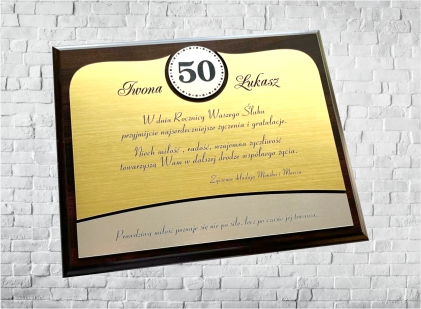 50
Iwona Łukasz
W dniu Rocznicy Waszego Ślubu
przyjmijcie najserdeczniejsze życzenia i gratulacje.
Niech miłość , radość, wzajemna życzliwość
towarzyszą Wam w dalszej drodze wspólnego życia.
Życzenia składają Monika i Marcin
Prawdziwą miłość poznaje się nie po sile, lecz po czasie jej trwania...